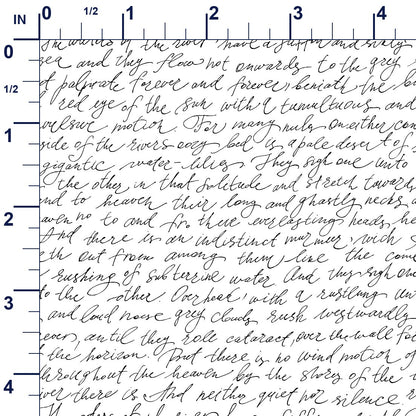 IN 0 1/2 1 2 3 4
0
1/2
1
2
3
4
The waters of the river have a saffron and sickly
sea and they flow not onwards to the grey
t palpitate forever and forever beneath the
red eye of the sun with a tumultuous and
vulsive motion. For many miles on either
side of the rivers oozy bed is a pale desert of
gigantic water-lilies. They sigh one unto
the other in that solitude and stretch towards
and to heaven their long and ghastly necks
aven no to and fro their everlasting heads
And there is an indistinct murmur, wich
eth out from among them like the
rushing of subterrine water And they sigh one
to the other. Overhear with a rustling
and loud noise grey clouds rush westwardly
ever, until they role cataract over the wall
the horizon. But there is no wind motion
throughout the heaven by the shores of the
iver there is And neither quiet nor silence.